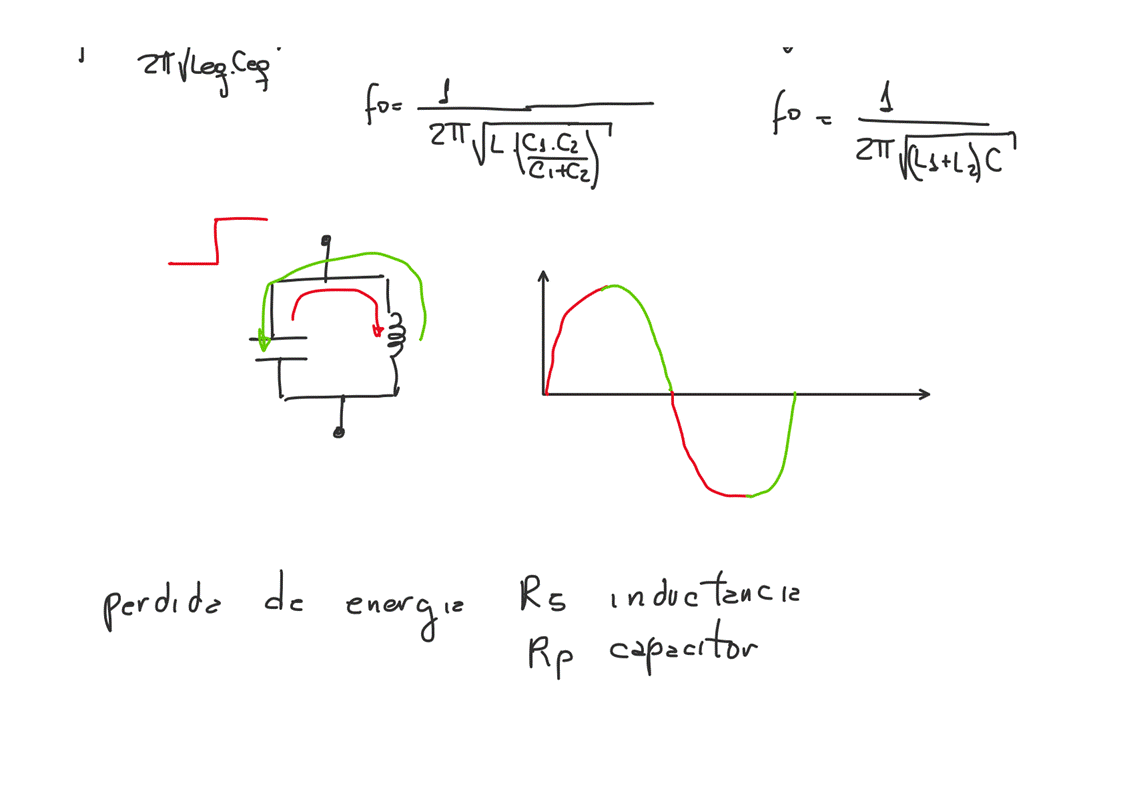 2π√Leq.Ceq
f0= 1 / 2π√L.(C1.C2 / C1+C2)
f0 = 1 / 2π√(L1+L2)C
perdida de energia Rs inductancia
Rp capacitor